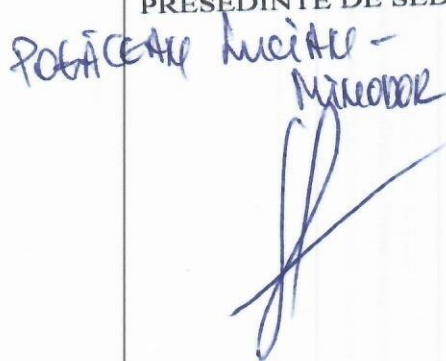 PREȘEDINTE DE ȘED
POGĂCEAN LUCIAN -
MINODOR